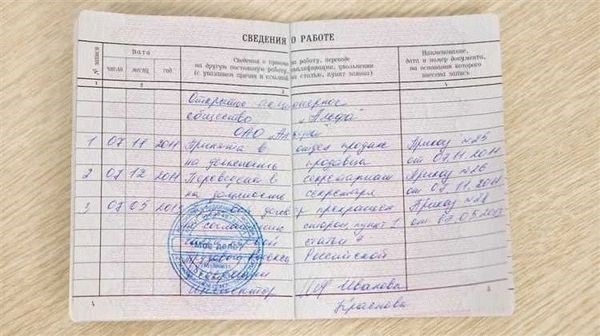 СВЕДЕНИЯ О РАБОТЕ
№ записи
Дата
число месяц год
Сведения о приеме на работу, переводе
на другую постоянную работу, квалификации, увольнении
(с указанием причин и ссылкой на статью, пункт закона)
Наименование,
дата и номер документа,
на основании которого
внесена запись
1 2 3 4
Открытое акционерное
общество "Альфа"
ОАО "Альфа"
1 07 11 2011 Принята в отдел продаж Приказ №25
на должность продавца от 07.11.2011
2 07 12 2011 Переведена в секретариат Приказ №26
на должность секретаря от 07.12.2011
3 07 05 прекращен Приказ №28
по соглашению сторон, пункт 1 от 07.05.
статьи
Трудового кодекса Российской
Федерации
МОЕ ДЕЛО
Инспектор Иванова
Краснова
4
5